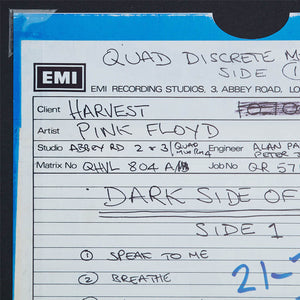 QUAD DISCRETE M
SIDE 1
EMI
EMI RECORDING STUDIOS, 3, ABBEY ROAD, LO
Client HARVEST
Artist PINK FLOYD
Studio ABBEY RD 2 & 3 / QUAD MIX RM 4 Engineer ALAN PA
PETER J
Matrix No QHVL 804 A Job No QR 57
DARK SIDE OF
SIDE 1
1 SPEAK TO ME
2 BREATHE
21-